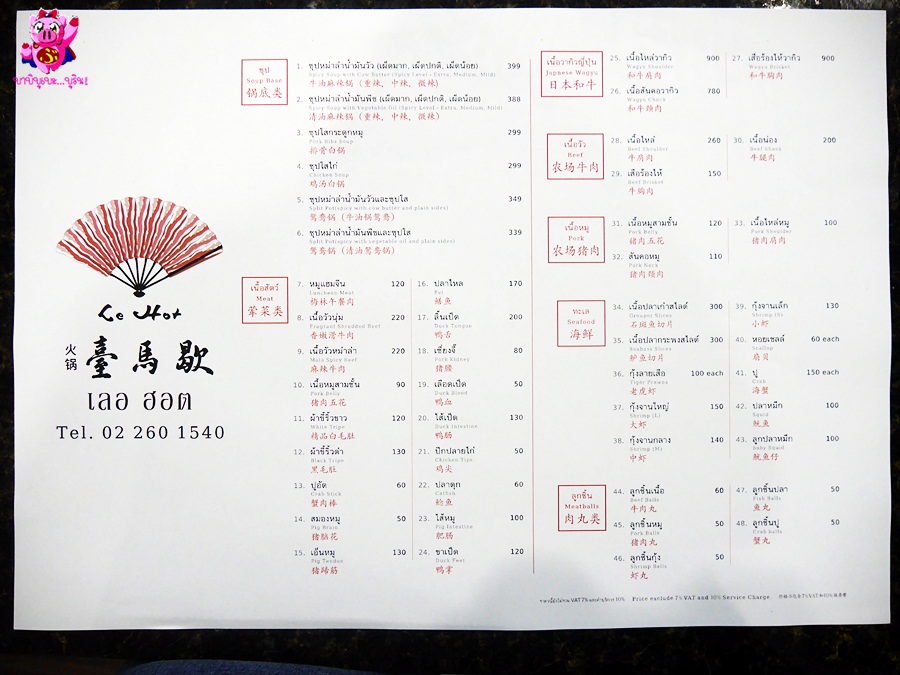 นายบุญมะ...บุลิน!
Le Hot
火锅
臺馬歇
เลอ ฮอต
Tel. 02 260 1540
ซุป
Soup Base
锅底类
1. ซุปหม่าล่าน้ำมันวัว (เผ็ดมาก, เผ็ดปกติ, เผ็ดน้อย) 399
Spicy Soup with Cow Butter (Spicy Level - Extra, Medium, Mild)
牛油麻辣锅（重辣, 中辣, 微辣）
2. ซุปหม่าล่าน้ำมันพืช (เผ็ดมาก, เผ็ดปกติ, เผ็ดน้อย) 388
Spicy Soup with Vegetable Oil (Spicy Level - Extra, Medium, Mild)
清油麻辣锅（重辣, 中辣, 微辣）
3. ซุปใสกระดูกหมู 299
Pork Ribs Soup
棒骨白锅
4. ซุปใสไก่ 299
Chicken Soup
鸡汤白锅
5. ซุปหม่าล่าน้ำมันวัวและซุปใส 349
Split Pot(spicy with cow butter and plain sides)
鸳鸯锅（牛油锅鸳鸯）
6. ซุปหม่าล่าน้ำมันพืชและซุปใส 339
Split Pot(spicy with vegetable oil and plain sides)
鸳鸯锅（清油鸳鸯锅）
เนื้อสัตว์
Meat
荤菜类
7. หมูแฮมจีน 120
Luncheon Meat
梅林午餐肉
8. เนื้อวัวนุ่ม 220
Fragrant Shredded Beef
香嫩滑牛肉
9. เนื้อวัวหม่าล่า 220
Mala Spicy Beef
麻辣牛肉
10. เนื้อหมูสามชั้น 90
Pork Belly
猪肉五花
11. ผ้าขี้ริ้วขาว 120
White Tripe
精品白毛肚
12. ผ้าขี้ริ้วดำ 130
Black Tripe
黑毛肚
13. ปูอัด 60
Crab Stick
蟹肉棒
14. สมองหมู 50
Pig Brain
猪脑花
15. เอ็นหมู 130
Pig Tendon
猪蹄筋
16. ปลาไหล 170
Eel
鳝鱼
17. ลิ้นเป็ด 200
Duck Tongue
鸭舌
18. เซี่ยงจี๊ 80
Pork Kidney
猪腰
19. เลือดเป็ด 50
Duck Blood
鸭血
20. ไส้เป็ด 130
Duck Intestion
鸭肠
21. ปีกปลายไก่ 50
Chicken Tips
鸡尖
22. ปลาดุก 60
Catfish
鲶鱼
23. ไส้หมู 100
Pig Intestion
肥肠
24. ขาเป็ด 120
Duck Feet
鸭掌
เนื้อวากิวญี่ปุ่น
Japanese Wagyu
日本和牛
25. เนื้อไหล่วากิว 900
Wagyu Shoulder
和牛肩肉
26. เนื้อสันคอวากิว 780
Wagyu Chuck
和牛颈肉
27. เสือร้องไห้วากิว 900
Wagyu Brisket
和牛胸肉
เนื้อวัว
Beef
农场牛肉
28. เนื้อไหล่ 260
Beef Shoulder
牛肩肉
29. เสือร้องไห้ 150
Beef Brisket
牛胸肉
30. เนื้อน่อง 200
Beef Shank
牛腿肉
เนื้อหมู
Pork
农场猪肉
31. เนื้อหมูสามชั้น 120
Pork Belly
猪肉五花
32. สันคอหมู 110
Pork Neck
猪肉颈肉
33. เนื้อไหล่หมู 100
Pork Shoulder
猪肉肩肉
ทะเล
Seafood
海鲜
34. เนื้อปลาเก๋าสไลด์ 300
Grouper Slices
石斑鱼切片
35. เนื้อปลากะพงสไลด์ 300
Seabass Slices
鲈鱼切片
36. กุ้งลายเสือ 100 each
Tiger Prawns
老虎虾
37. กุ้งจานใหญ่ 150
Shrimp (L)
大虾
38. กุ้งจานกลาง 140
Shrimp (M)
中虾
39. กุ้งจานเล็ก 130
Shrimp (S)
小虾
40. หอยเชลล์ 60 each
Scallop
扇贝
41. ปู 150 each
Crab
海蟹
42. ปลาหมึก 100
Squid
鱿鱼
43. ลูกปลาหมึก 100
Baby Squid
鱿鱼仔
ลูกชิ้น
Meatballs
肉丸类
44. ลูกชิ้นเนื้อ 60
Beef Balls
牛肉丸
45. ลูกชิ้นหมู 50
Pork Balls
猪肉丸
46. ลูกชิ้นกุ้ง 50
Shrimp Balls
虾丸
47. ลูกชิ้นปลา 50
Fish Balls
鱼丸
48. ลูกชิ้นปู 50
Crab balls
蟹丸
Price exclude 7% VAT and 10% Service Charge